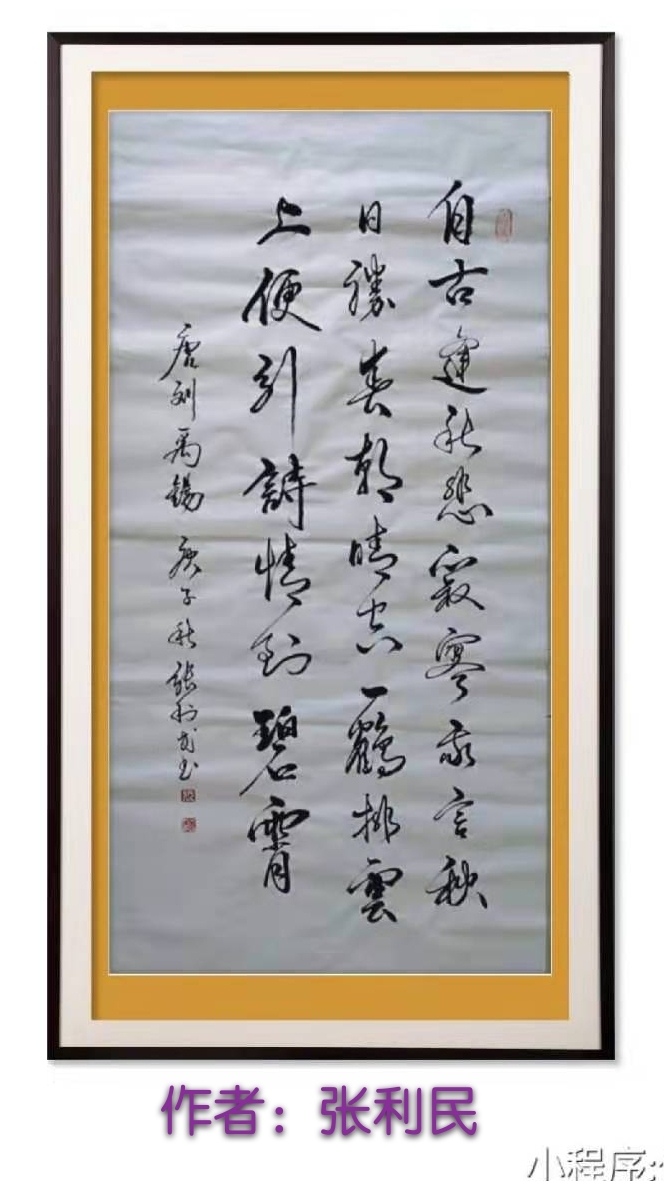 自古逢秋悲寂寥我言秋
日勝春朝晴空一鶴排雲
上便引詩情到碧霄
唐刘禹錫 庚子秋 張利民书
作者：张利民
小程序